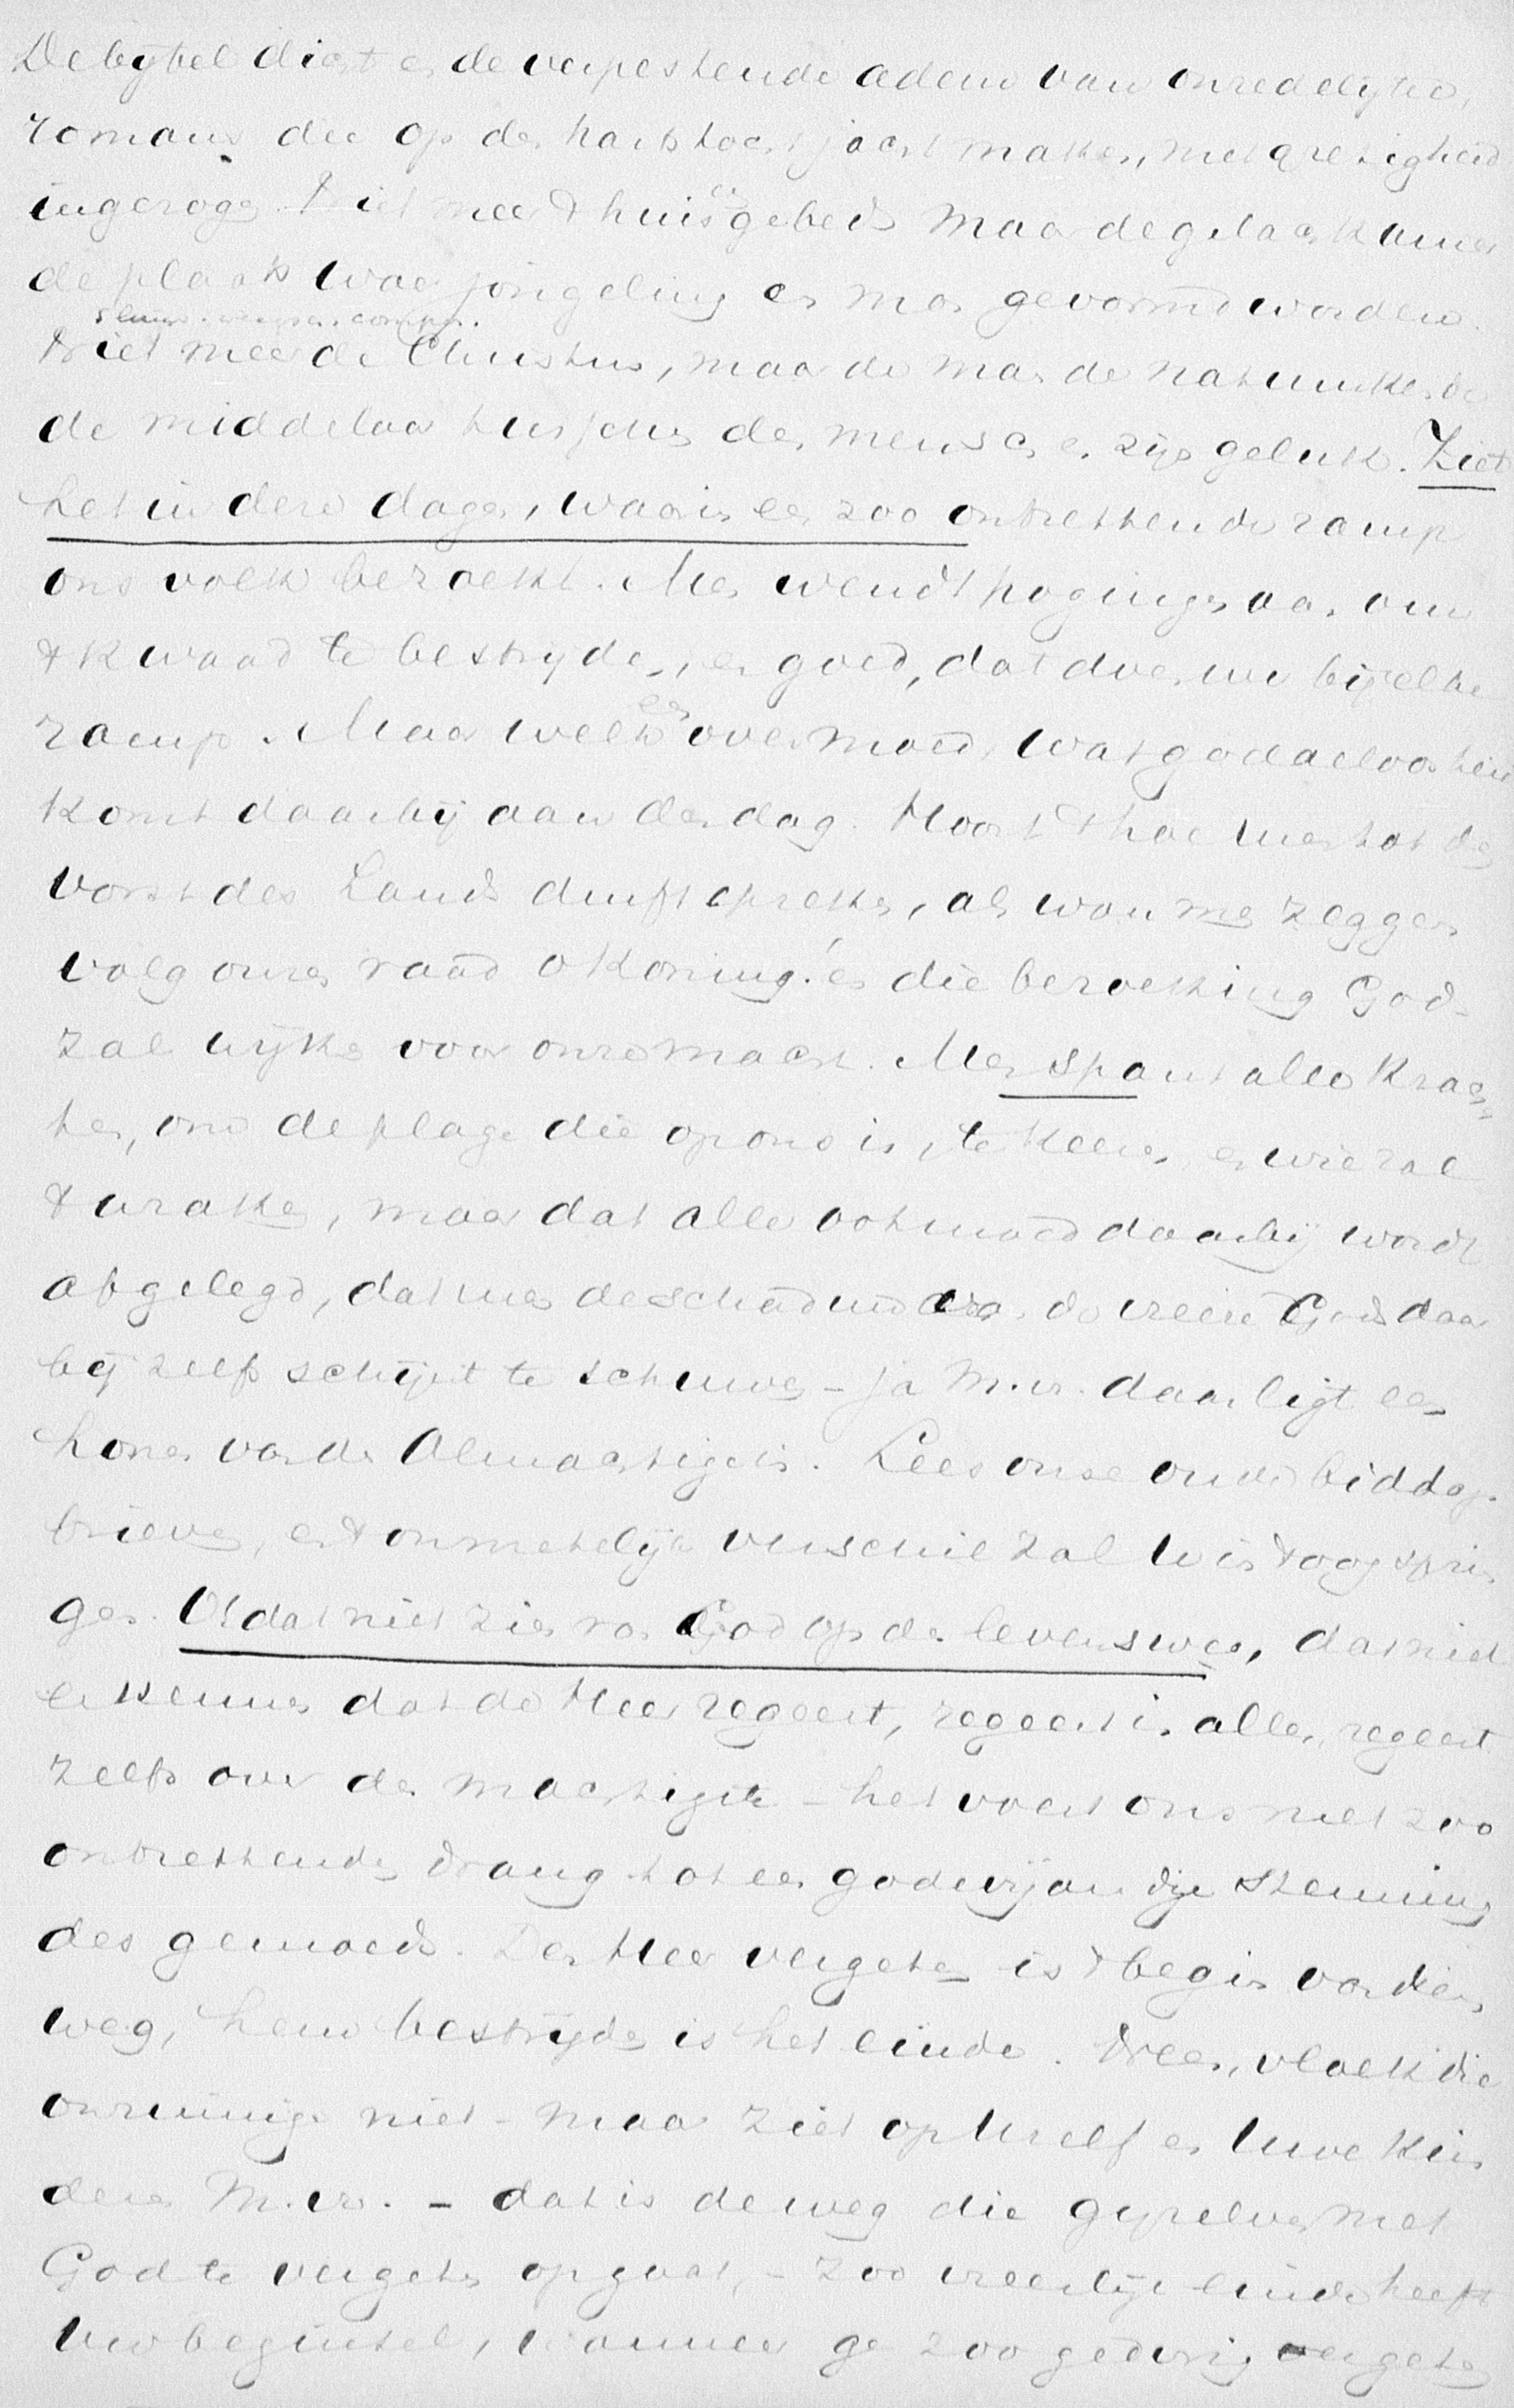 De bijbel dicht en de verpestende adem van onredelijke,
romans die op den hartstocht jacht maken, met gretigheid
ingezogen. Niet meer 't huisgebed maar de gelagkamer
de plaats waar jongeling en man gevormd worden.
Niet meer de Christus, maar de man de natuurkenner
de middelaar tusschen den mensch en zijn geluk. Ziet
het in deze dagen, waarin een zoo ontzettende ramp
ons volk bezoekt. Men wendt pogingen aan om
't kwaad te bestrijden, en goed, dat doen we bij elke
ramp. Maar welk een overmoed, wat goddeloosheid
komt daarbij aan den dag. Hoort 't hoe men tot den
vorst des Lands durft spreken, als wou men zeggen
volg onzen raad o Koning! en die bezoeking God-
zal wijken voor onze macht. Men spant alle krach-
ten, om de plage die op ons is, te keeren, en wie zal
't wraken, maar dat alle ootmoed daarbij wordt
afgelegd, dat men de schaduw van de vreeze Gods daar
bij zelfs schijnt te schuwen - ja m.vr. daar ligt een
honen van den Almachtige in. Lees onze oude biddags
brieven, en 't onmetelijk verschil zal U in 't oog sprin
gen. O dat niet zien van God op den levensweg, dat niet
erkennen dat de Heer regeert, regeert in alles, regeert
zelfs over den machtigste - het voert ons met zoo
ontzettenden drang tot een godvijandige stemming
des gemoeds. Den Heer vergeten is 't begin van dien
weg, hem bestrijden is het einde. Neen, vloek die
onzinnige niet - maar ziet op Uzelf en Uwe kin
deren m.vr. - dat is de weg die gij zelven met
God te vergeten opgaat, - zoo vreeselijk einde heeft
Uw beginsel, wanneer ge zoo gedurig vergeten